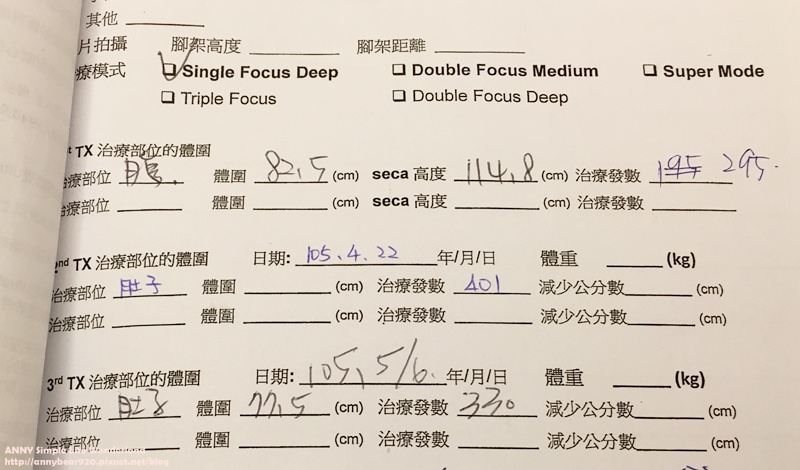 其他
片拍攝 腳架高度 腳架距離
療模式 ☑ Single Focus Deep ☐ Double Focus Medium ☐ Super Mode
☐ Triple Focus ☐ Double Focus Deep
st TX 治療部位的體圍
治療部位 腹. 體圍 82.5 (cm) seca 高度 114.8 (cm) 治療發數 195 295.
治療部位 體圍 (cm) seca 高度 (cm) 治療發數
2nd TX 治療部位的體圍 日期: 105.4.22 年/月/日 體重 (kg)
治療部位 肚子 體圍 (cm) 治療發數 401 減少公分數 (cm)
治療部位 體圍 (cm) 治療發數 減少公分數 (cm)
3rd TX 治療部位的體圍 日期: 105, 5/6. 年/月/日 體重 (kg)
治療部位 肚子 體圍 77.5 (cm) 治療發數 330 減少公分數 (cm)
治療部位 體圍 (cm) 治療發數 減少公分數 (cm)
ANNY Simple
http://annybear920.pixnet.net/blog